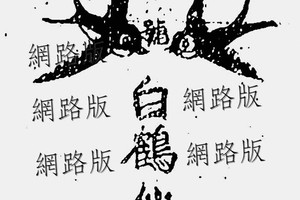 號
網路版
白鶴
網路版 網路版
網路版 網路版